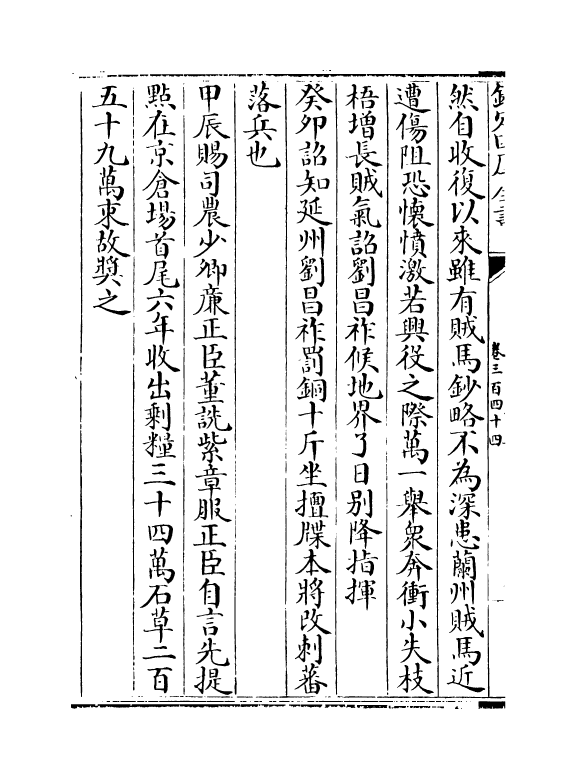 欽定四庫全書
卷三百四十四
然自收復以來雖有賊馬鈔略不為深患蘭州賊馬近
遭傷阻恐懷憤激若興役之際萬一舉衆奔衝小失枝
梧增長賊氣詔劉昌祚候地界了日别降指揮
癸卯詔知延州劉昌祚罰銅十斤坐擅牒本將改刺蕃
落兵也
甲辰賜司農少卿廉正臣董詵紫章服正臣自言先提
點在京倉場首尾六年收出剩糧三十四萬石草二百
五十九萬束故奬之